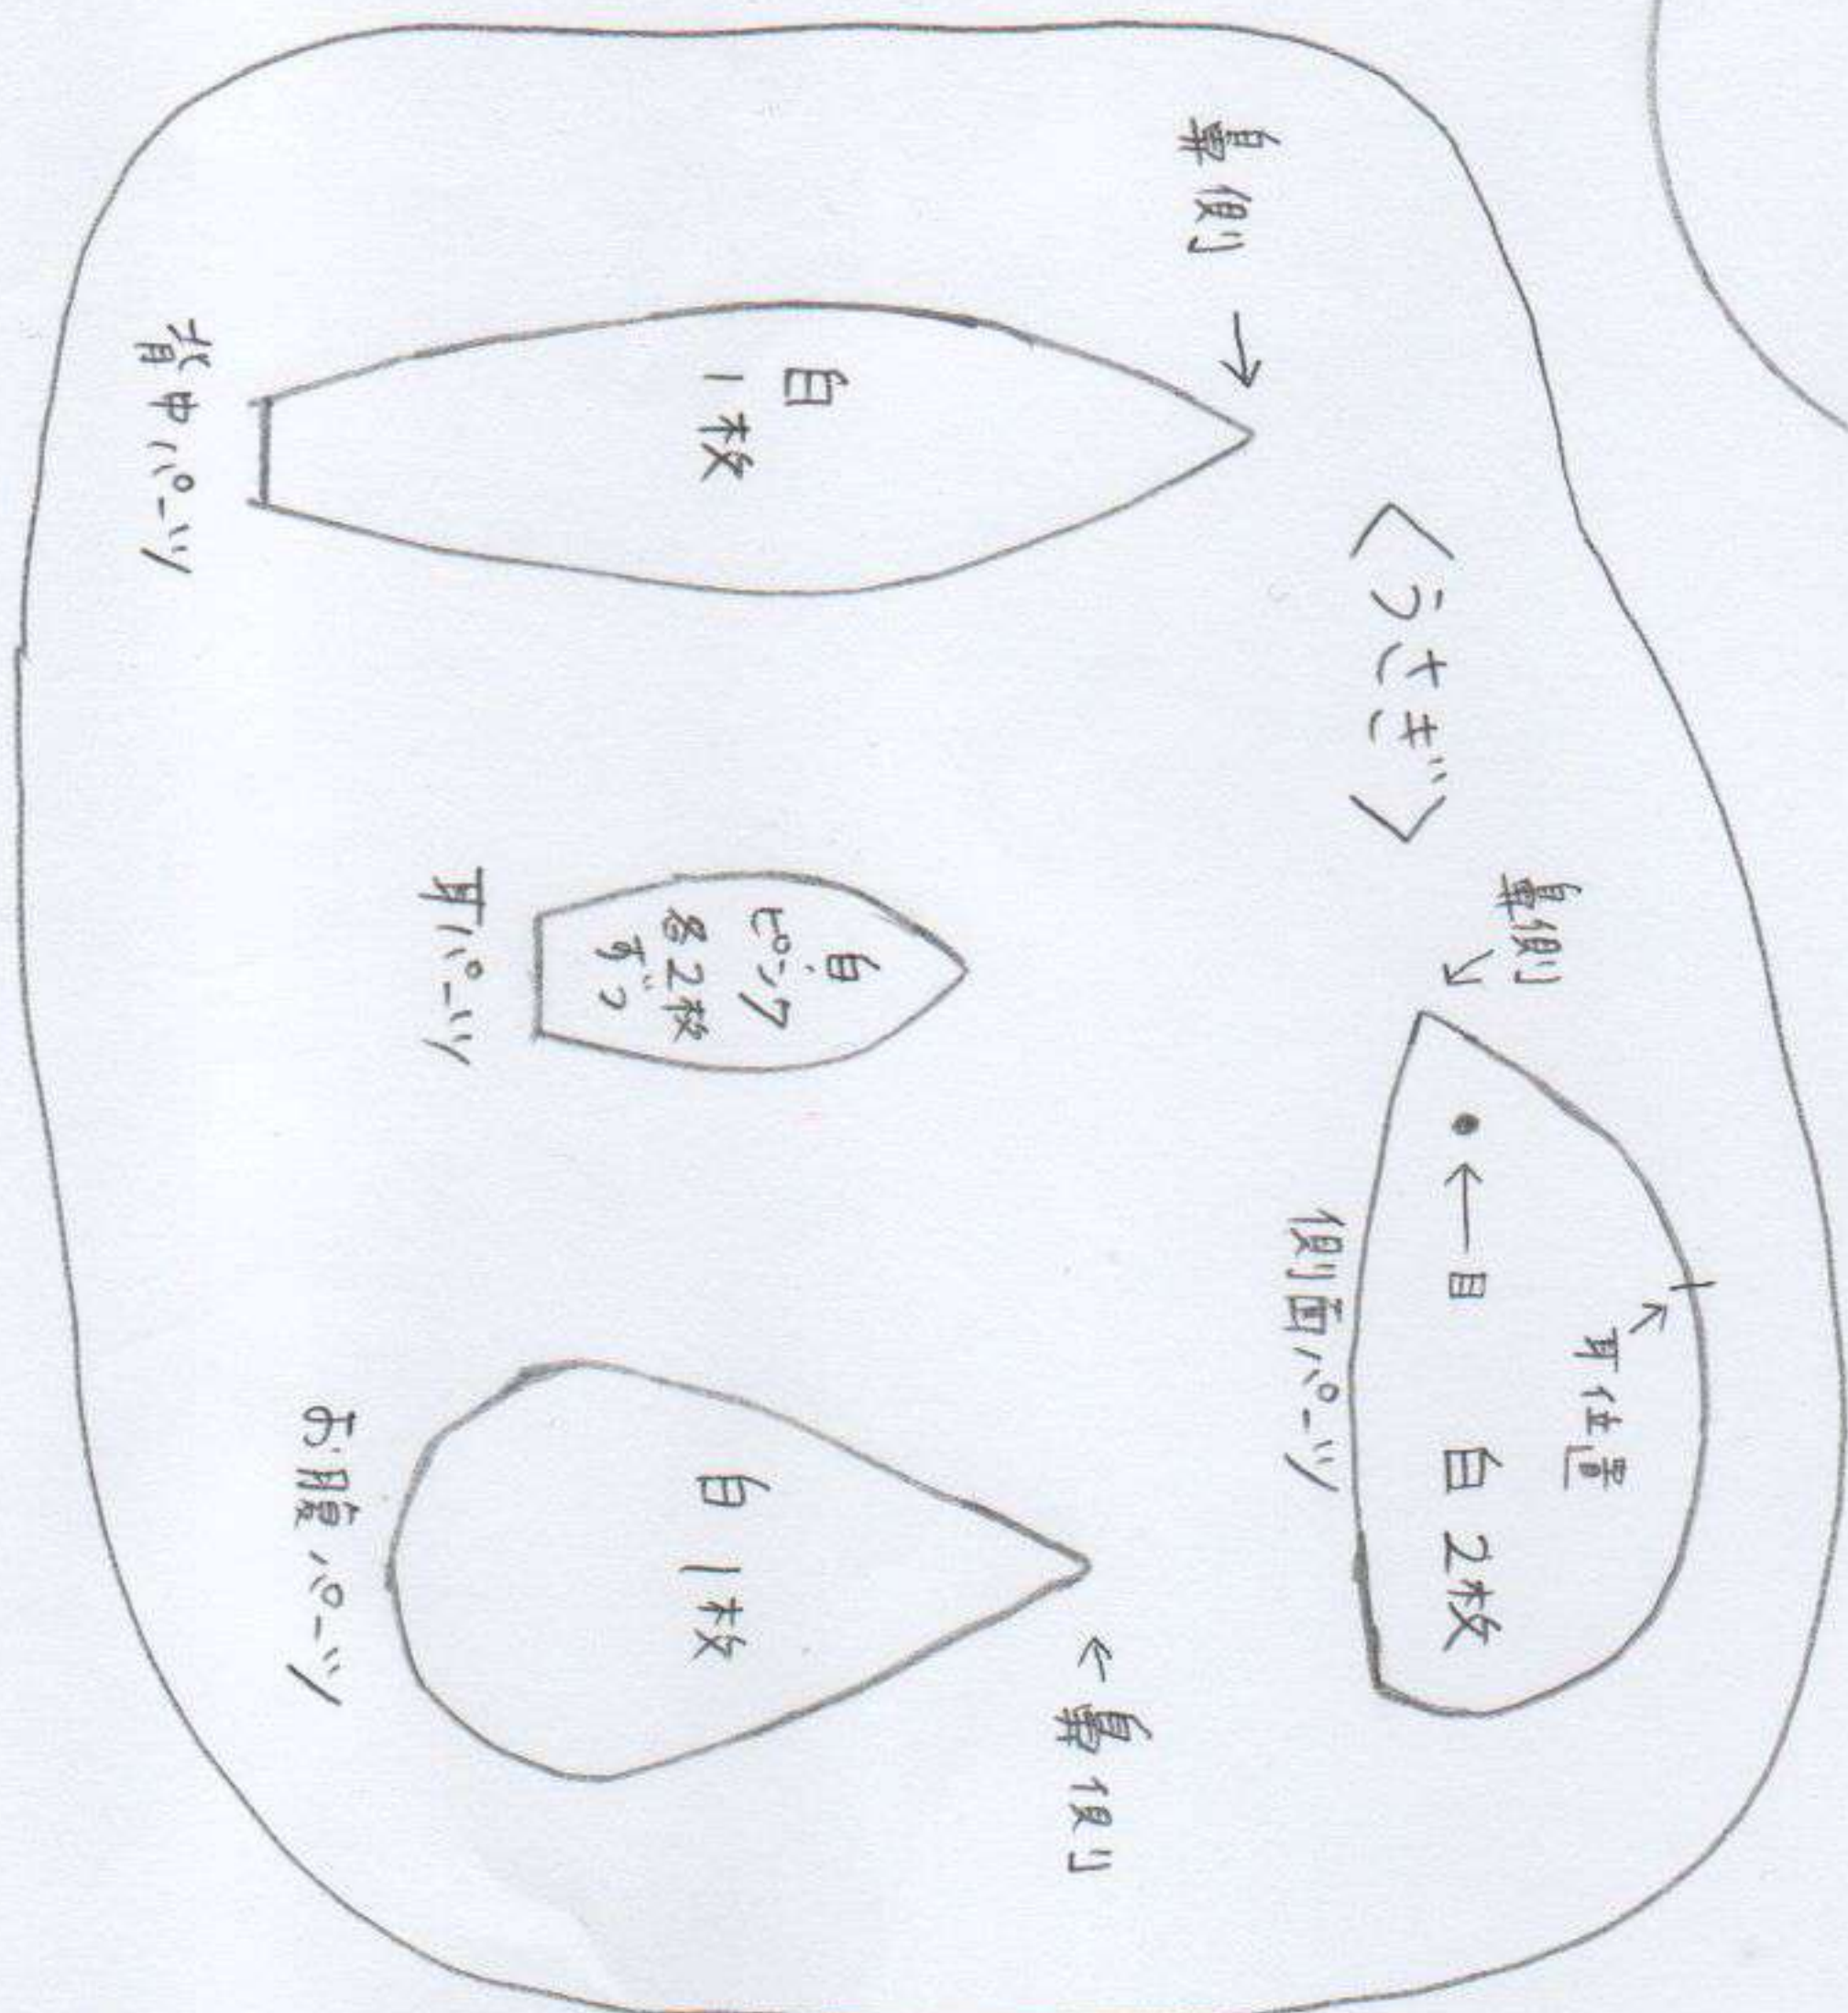 <うさぎ>
鼻側→
白
1枚
背中パーツ
白・
ピンク
各2枚
ずつ
耳パーツ
鼻側
↓
耳位置
←目
白 2枚
側面パーツ
←鼻側
白 1枚
お腹パーツ